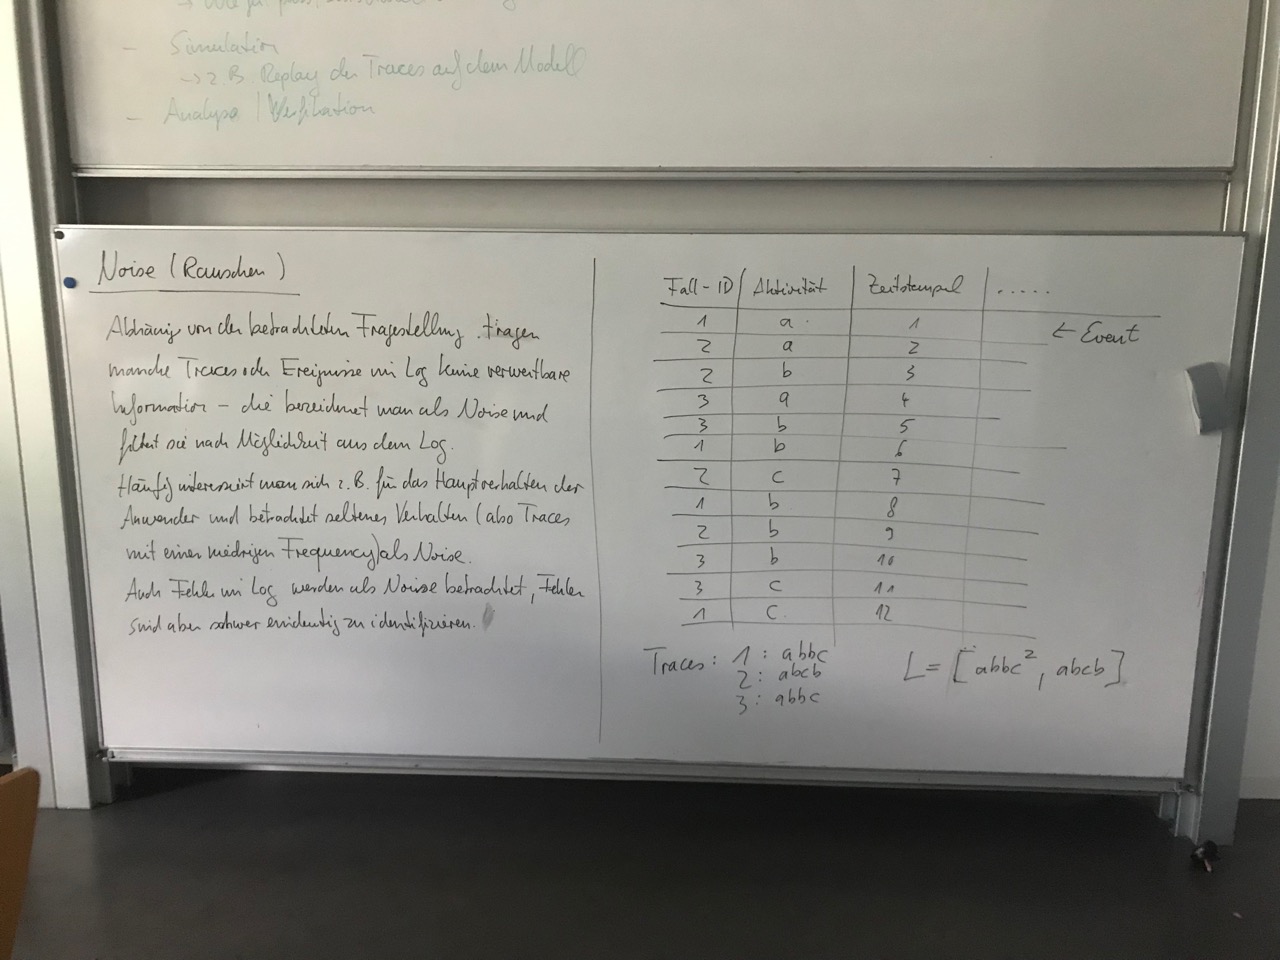 - Simulation
-> z.B. Replay der Traces auf dem Modell
- Analyse / Verifikation
Noise (Rauschen)
Abhängig von der betrachteten Fragestellung tragen
manche Traces oder Ereignisse im Log keine verwertbare
Information - die bezeichnet man als Noise und
filtert sie nach Möglichkeit aus dem Log.
Häufig interessiert man sich z.B. für das Hauptverhalten der
Anwender und betrachtet seltenes Verhalten (also Traces
mit einer niedrigen Frequency) als Noise.
Auch Fehler im Log werden als Noise betrachtet, Fehler
sind aber schwer eindeutig zu identifizieren.
Fall-ID Aktivität Zeitstempel .....
1 a 1 ← Event
2 a 2
2 b 3
3 a 4
3 b 5
1 b 6
2 c 7
1 b 8
2 b 9
3 b 10
3 c 11
1 c 12
Traces: 1: abbc
2: abcb
3: abbc
L = [abbc², abcb]